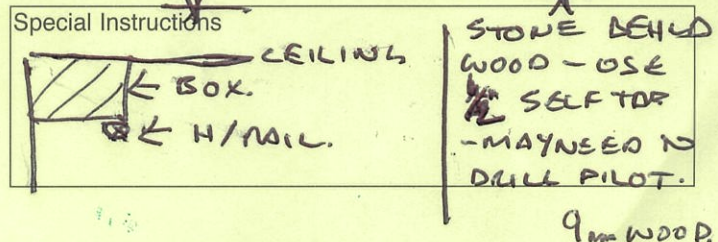 Special Instructions
CEILING
BOX.
H/RAIL.
STONE BEHIND
WOOD - USE
SELF TAP
- MAY NEED TO
DRILL PILOT.
9mm WOOD.